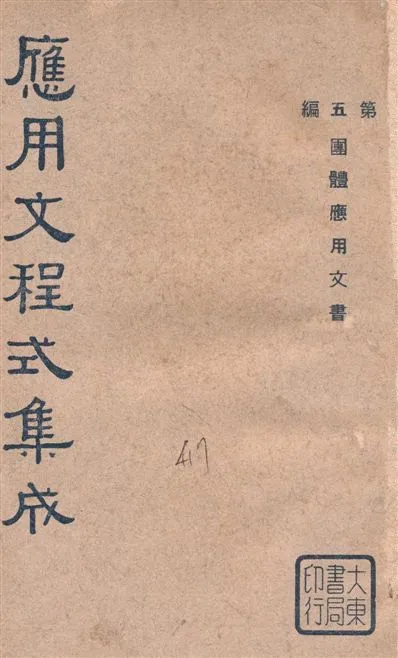 第五編
團體應用文書
應用文程式集成
417
大東
書局
印行